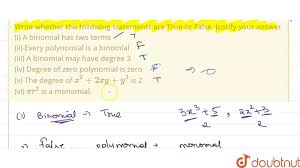 Write whether the following statements are True or False. Justify your answer.
(i) A binomial has two terms T
(ii) Every polynomial is a binomial F
(iii) A binomial may have degree 3 T
(iv) Degree of zero polynomial is zero F → 0
(v) The degree of x² + 2xy + y² is 2 T
(vi) πr² is a monomial.
(i) Binomial → True 3x³+5/2 , 2x²+3/2
False polynomial → monomial
doubtnut